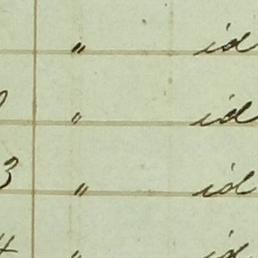 " id
" id
3 " id
" id